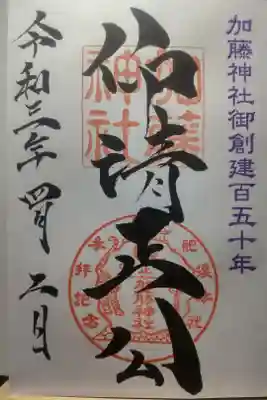 加藤神社御創建百五十年
仰清正公
令和三年四月二日
加藤
神社